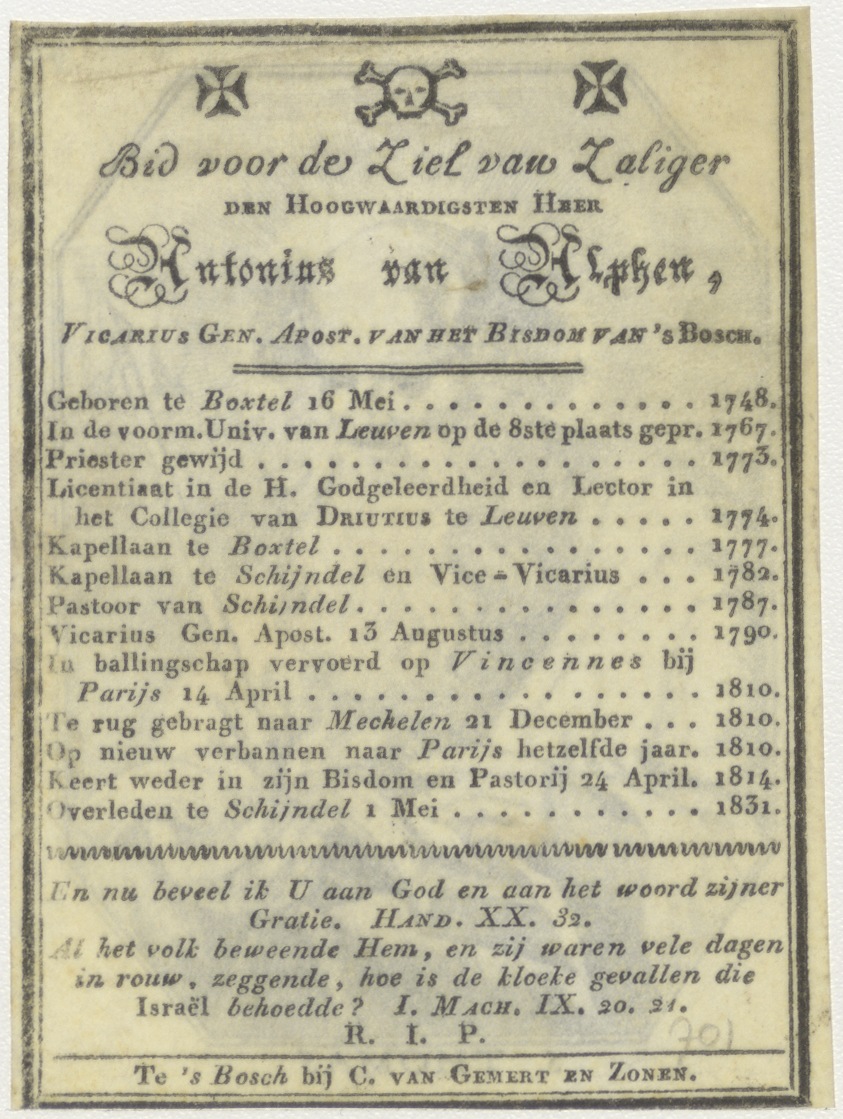 Bid voor de Ziel van Zaliger
DEN HOOGWAARDIGSTEN HEER
Antonius van Alphen,
VICARIUS GEN. APOST. VAN HET BISDOM VAN 's BOSCH.
Geboren te Boxtel 16 Mei . . . . . . . . . . . . . 1748.
In de voorm. Univ. van Leuven op de 8ste plaats gepr. 1767.
Priester gewijd . . . . . . . . . . . . . . . . . . . 1773.
Licentiaat in de H. Godgeleerdheid en Lector in
het Collegie van DRIUTIUS te Leuven . . . . . 1774.
Kapellaan te Boxtel . . . . . . . . . . . . . . . . 1777.
Kapellaan te Schijndel en Vice-Vicarius . . . 1782.
Pastoor van Schijndel . . . . . . . . . . . . . . . 1787.
Vicarius Gen. Apost. 13 Augustus . . . . . . . . 1790.
In ballingschap vervoerd op Vincennes bij
Parijs 14 April . . . . . . . . . . . . . . . . . 1810.
Te rug gebragt naar Mechelen 21 December . . . 1810.
Op nieuw verbannen naar Parijs hetzelfde jaar. 1810.
Keert weder in zijn Bisdom en Pastorij 24 April. 1814.
Overleden te Schijndel 1 Mei . . . . . . . . . . . 1831.
En nu beveel ik U aan God en aan het woord zijner
Gratie. HAND. XX. 32.
Al het volk beweende Hem, en zij waren vele dagen
in rouw, zeggende, hoe is de kloeke gevallen die
Israël behoedde? I. MACH. IX. 20. 21.
R. I. P.
701
Te 's Bosch bij C. VAN GEMERT EN ZONEN.